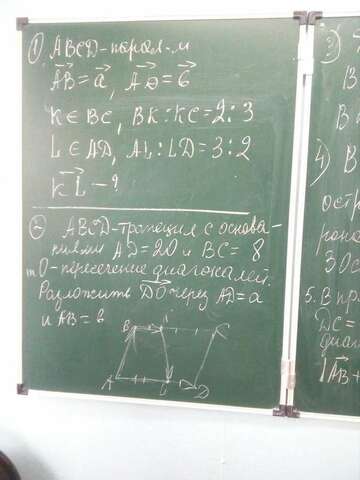 1) ABCD-парал-м
AB = a, AD = b
K ∈ BC, BK:KC=2:3
L ∈ AD, AL:LD=3:2
KL - ?
2) ABCD-трапеция с основа-
ниями AD=20 и BC=8
т O-пересечение диагоналей.
Разложить DO через AD=a
и AB=b
B K C
A L D
3)
B
B
4) В
остр
рона
3 Oc
5. В пр
DC=
диаг
|AB+